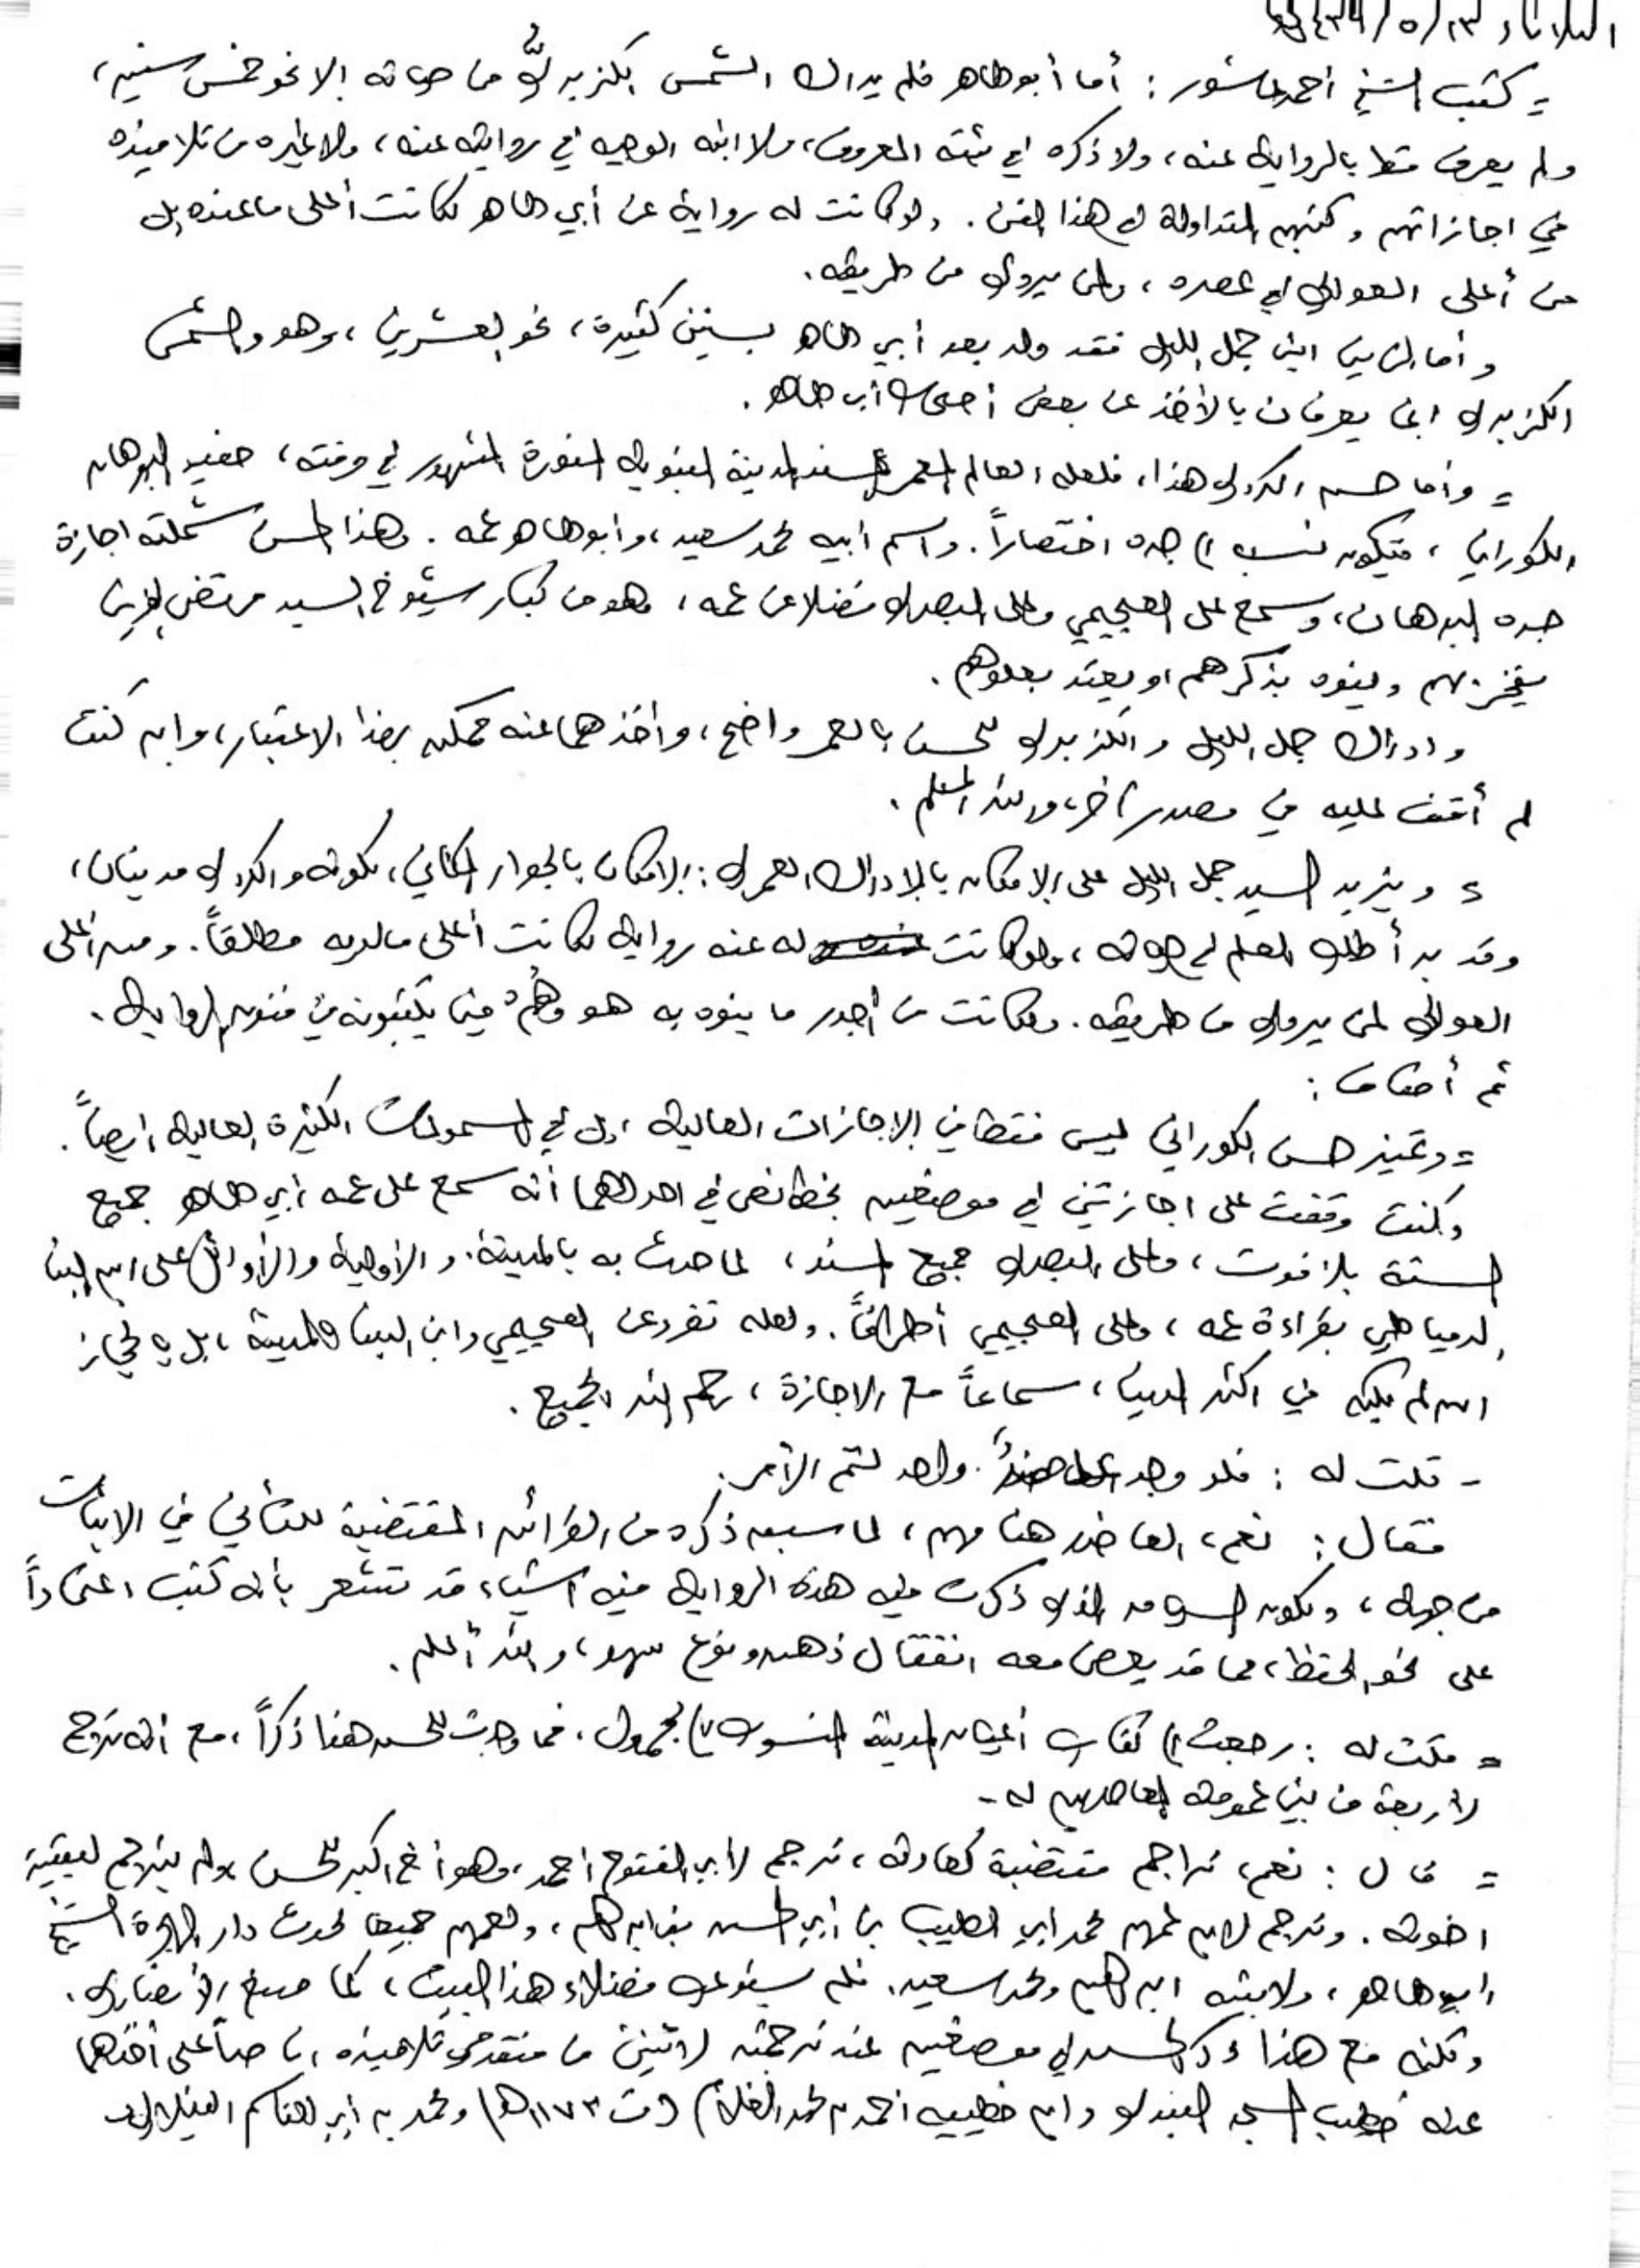 الثلاثاء ١٣/٥/١٤٣٤هـ
= كتب الشيخ أحمد عاشور : أما أبو طاهر فلم يدرك الشمس الكزبريُّ من حياته إلا نحو خمس سنين،
ولم يعرف قط بالرواية عنه، ولا ذكره في ثبته المعروف، ولا ابنه الوجيه في روايته عنه، ولا غيره من تلاميذه
في اجازاتهم وكتبهم المتداولة في هذا الفن. ولو كانت له رواية عن أبي طاهر لكانت أعلى ما عنده بل
من أعلى العوالي في عصره، ولمن يروي من طريقه.
وأما الزين ابن جمل الليل فقد ولد بعد أبي طاهر بسنين كثيرة، نحو العشرين، وهو والشمس
الكزبري إنما يعرفان بالأخذ عن بعض أصحاب أبي طاهر.
= وأما حسن الكردي هذا، فلعله العالم المعمر مسند المدينة النبوية المنورة المشهور في وقته، حفيد البرهان
الكوراني، فيكون نسب إلى جده اختصاراً. واسم أبيه محمد سعيد، وأبو طاهر عمه. وهذا الحسن شملته اجازة
جده البرهان، وسمع على العجيمي وعلى البصري فضلا عن عمه، وهو من كبار شيوخ السيد مرتضى الذين
يفخر بهم وينوه بذكرهم أو يعتد بعلوهم.
وإدراك جمل الليل والكزبري للحسن بالعمر واضح، وأخذهما عنه ممكن بهذا الاعتبار، وإن كنت
لم أقف عليه في مصدر آخر، والله أعلم.
= ويزيد السيد جمل الليل على الإمكان بالإدراك العمري: الإمكان بالجوار المكاني، لكونه والكردي مدنيان،
وقد بدأ طلب العلم في حياته، ولو كانت له عنه رواية لكانت أعلى ما لديه مطلقاً. ومن أعلى
العوالي لمن يروي من طريقه. ولكانت من أجدر ما ينوه به هو وهُم فيما يكتبونه في فنون الرواية.
ثم أضاف :
= وتميز حسن الكوراني ليس فقط في الاجازات العالية، بل في المسموعات الكثيرة العالية أيضاً.
وكنت وقفت على اجازتين في موضعين بخطه نص في احداهما أنه سمع على عمه أبي طاهر جميع
الستة بلا فوت، وعلى البصري جميع المسند، لما حدث به بالمدينة. والأولية والأوائل على ابن البنا
الدمياطي بقراءة عمه، وعلى العجيمي أطرافاً. ولعله تفرد عن العجيمي وابن البنا بالمدينة، بل بالحجاز
ان لم يكن في أكثر الدنيا، سماعاً مع الاجازة، رحم الله الجميع.
- قلت له : فلو وجد عاضدٌ واحد لتم الأمر.
فقال : نعم، العاضد هنا مهم، لما سبق ذكره من القرائن المقتضية للتأني في الاثبات
من جهة، ولكون الموضع الذي ذكرت فيه هذه الرواية فيه أشياء قد تشعر بأنه كتب اعتماداً
على نحو الحفظ، مما قد يعرض معه انتقال ذهن ونوع سهو، والله أعلم.
= قلت له : رجعت إلى كتاب أعيان المدينة المنسوب لمجهول، فما وجدت للحسن هنا ذكراً، مع أنه ترجم
لأربعة من بني عمومته المعاصرين له -
= قال : نعم، تراجم مقتضبة كعادته، ترجم لأبي الفتوح أحمد، وهو أخ أكبر للحسن ولم يترجم لبقية
اخوته. وترجم لابن عمهم محمد أبي الطيب بن أبي الحسن بن ابراهيم، ولعمهم جميعا محدث دار الهجرة الشيخ
أبو طاهر، ولابنيه ابراهيم ومحمد سعيد. فلم يستوعب فضلاء هذا البيت، كما صنع الأنصاري.
ولكنه مع هذا ذكر الحسن في موضعين عند ترجمته لاثنين من متقدمي تلاميذه، ناصاً على أخذهما
عنه خطيب المسجد النبوي وابن خطيبه أحمد بن محمد الغلام (ت ١١٧٣هـ) ومحمد بن أبي القاسم الفيلالي